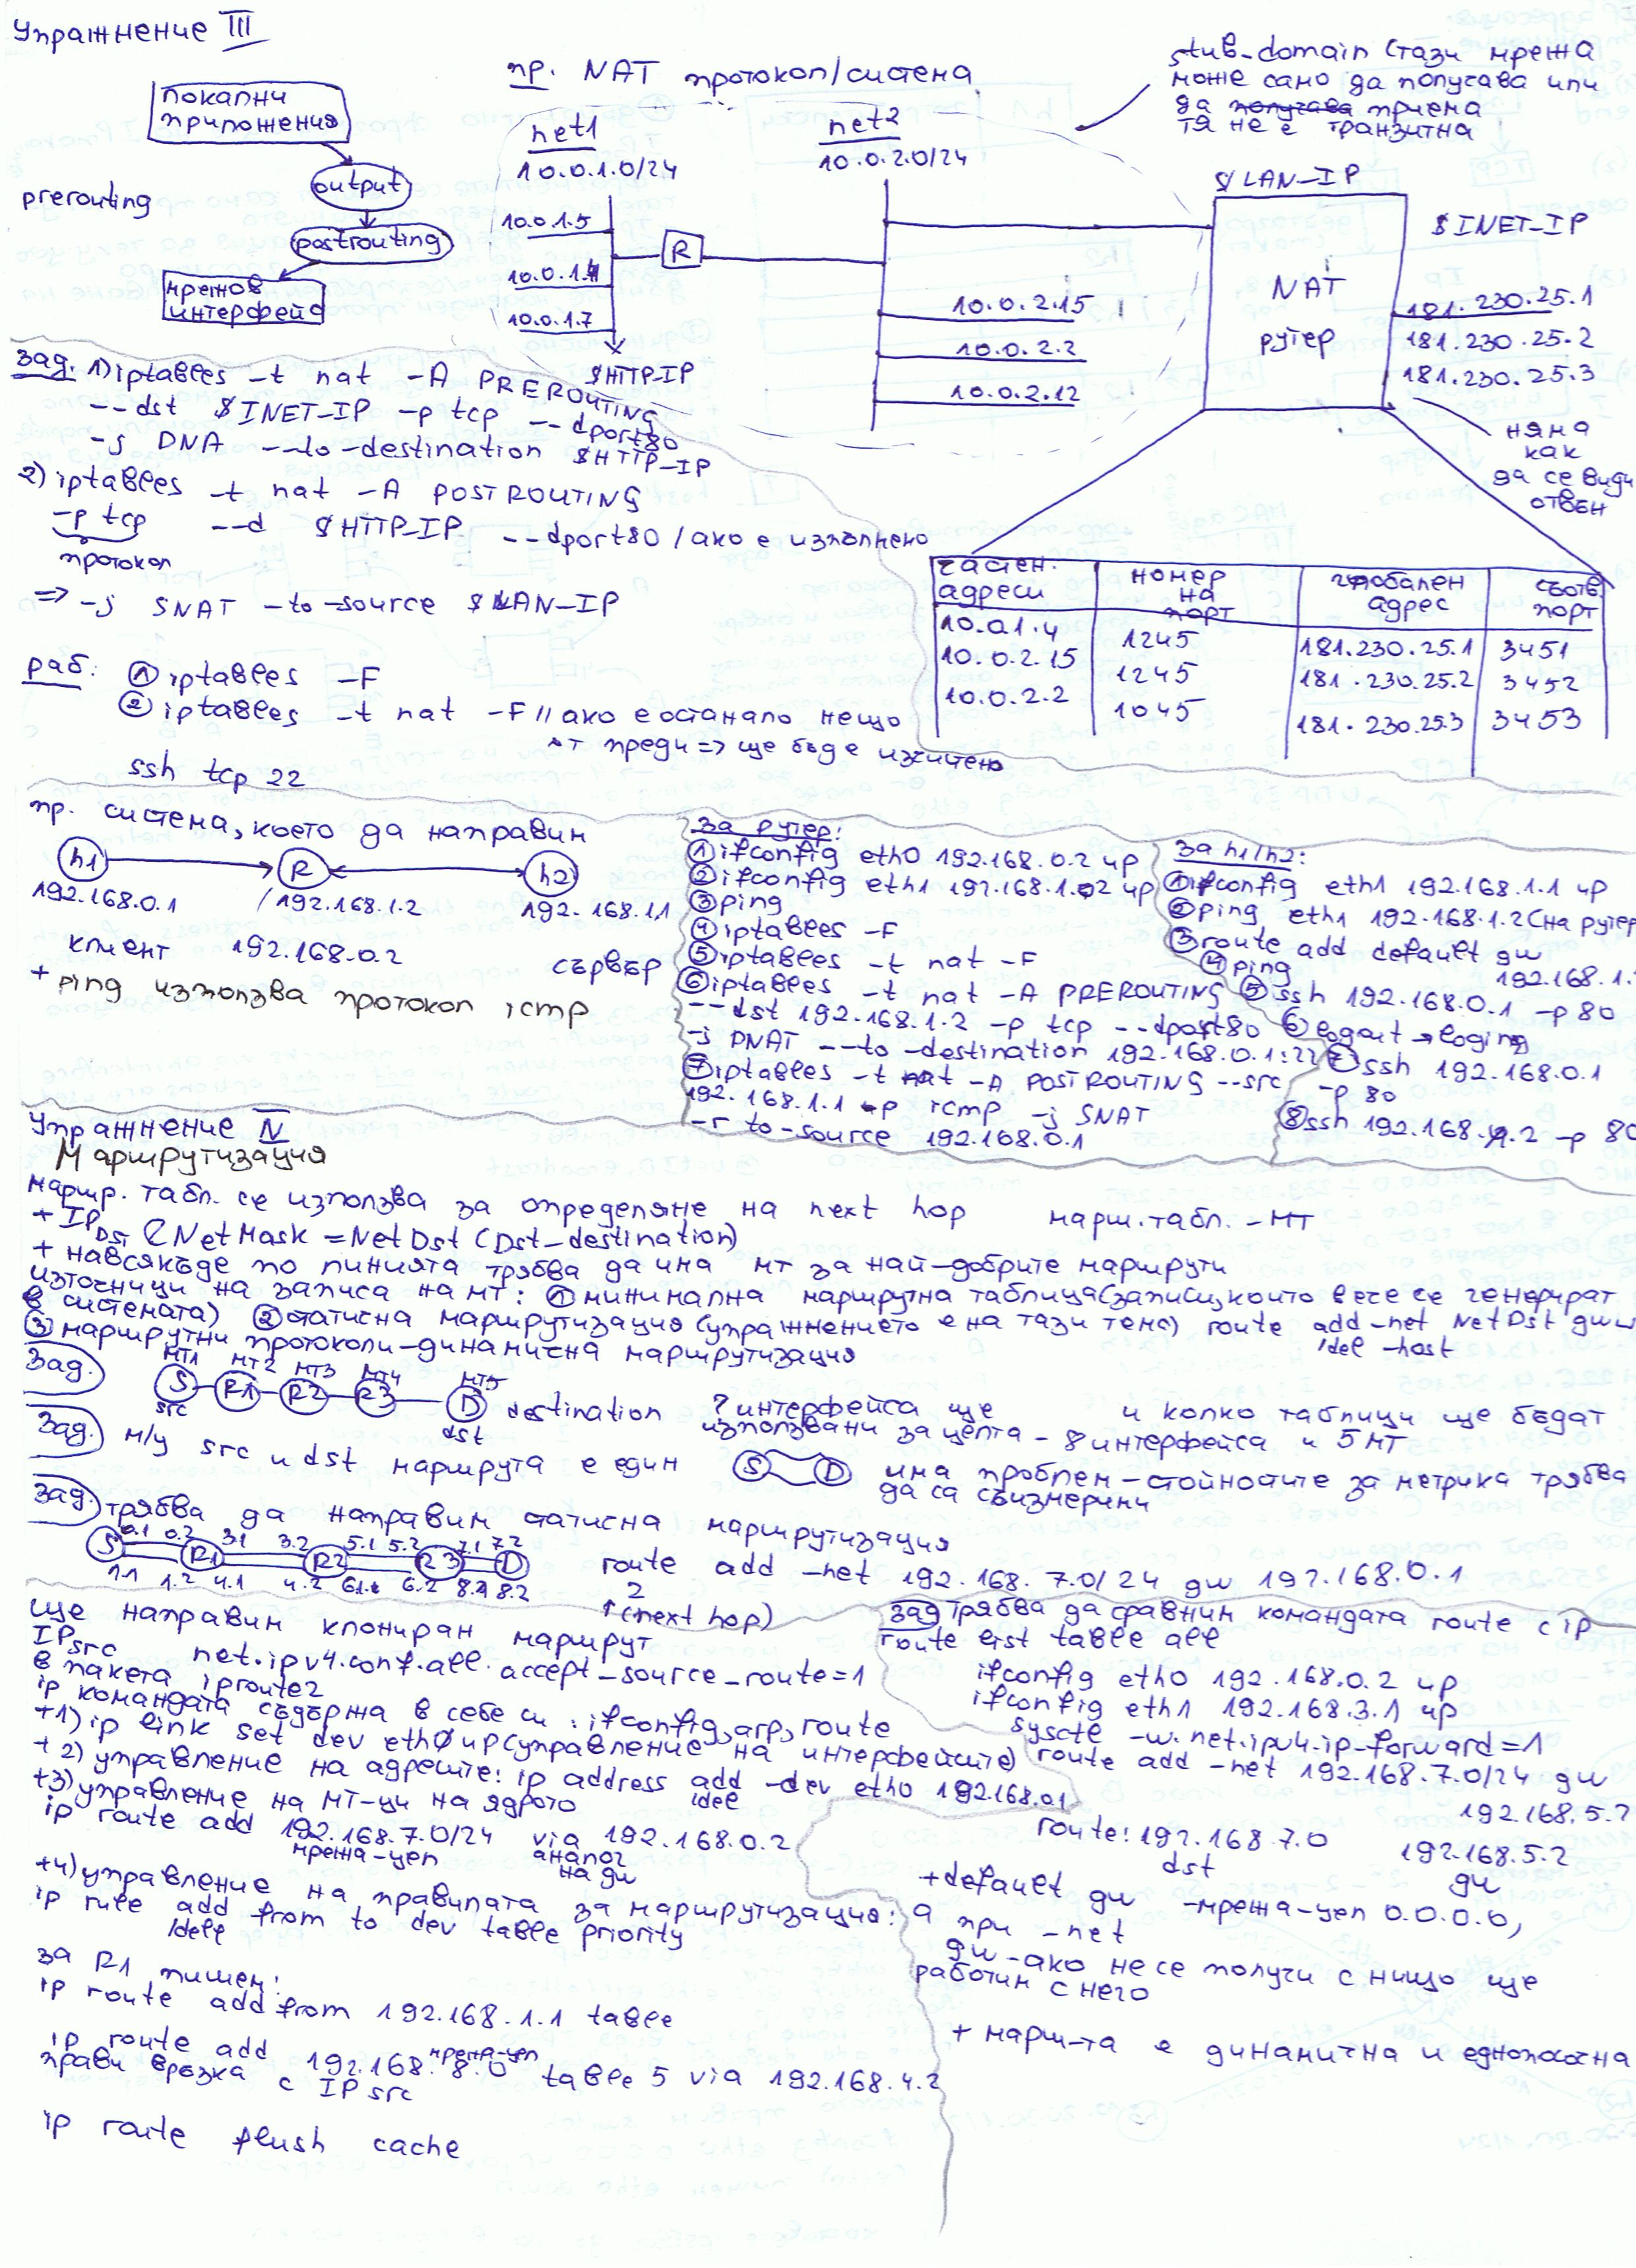 Упражнение III
локални
приложения
output
prerouting
postrouting
мрежов
интерфейс
пр. NAT протокол/система
net1
10.0.1.0/24
net2
10.0.2.0/24
10.0.1.5
10.0.1.4
10.0.1.7
R
10.0.2.15
10.0.2.2
10.0.2.12
stub-domain (тази мрежа
може само да получава или
да получава приема
тя не е транзитна
$LAN_IP
$INET_IP
NAT
рутер
181.230.25.1
181.230.25.2
181.230.25.3
няма
как
да се види
отвън
$HTTP_IP
зад. 1) iptables -t nat -A PREROUTING
--dst $INET_IP -p tcp --dport80
-j DNA --to-destination $HTTP_IP
2) iptables -t nat -A POSTROUTING
-p tcp --d $HTTP_IP --dport80 / ако е изпълнено
протокол
=> -j SNAT -to-source $LAN_IP
частен. адреси номер на порт глобален адрес съотв. порт
10.0.1.4 1245 181.230.25.1 3451
10.0.2.15 1245 181.230.25.2 3452
10.0.2.2 1045 181.230.25.3 3453
раб: ① iptables -F
② iptables -t nat -F // ако е останало нещо
от преди => ще бъде изчистено
ssh tcp 22
пр. система, което да направим
h1 R h2
192.168.0.1 192.168.1.2 192.168.1.1
клиент 192.168.0.2 сървър
+ ping използва протокол icmp
За рутер:
① ifconfig eth0 192.168.0.2 up
② ifconfig eth1 192.168.1.02 up
③ ping
④ iptables -F
⑤ iptables -t nat -F
⑥ iptables -t nat -A PREROUTING
--dst 192.168.1.2 -p tcp --dport80
-j DNAT --to-destination 192.168.0.1:22
⑦ iptables -t nat -A POSTROUTING --src
192.168.1.1 -p icmp -j SNAT
-r to-source 192.168.0.1
За h1/h2:
① ifconfig eth1 192.168.1.1 up
② ping eth1 192.168.1.2 (на рутер
③ route add default gw
192.168.1.
④ ping
⑤ ssh 192.168.0.1 -p 80
⑥ logaut → loging
⑦ ssh 192.168.0.1
-p 80
⑧ ssh 192.168.1.2 -p 80
Упражнение IV
Маршрутизация
маршр. табл. се използва за определяне на next hop марш.табл. - МТ
+ IP DST & NetMask = NetDst (Dst-destination)
+ навсякъде по линията трябва да има МТ за най-добрите маршрути
източници на записа на МТ: ① минимална маршрутна таблица (записи, които вече се генерират
в системата) ② статисна маршрутизация (упражнението е на тази тема) route add -net NetDst gw
/del -host
③ маршрутни протоколи - динамисна маршрутизация
Зад.
МТ1 МТ2 МТ3 МТ4 МТ5
S R1 R2 R3 D destination
src dst
? интерфейса ще и колко таблици ще бъдат
използвани за целта - 8 интерфейса и 5 МТ
Зад. м/у src и dst маршрута е един S D има проблем - стойностите за метрика трябва
да са съизмерими
Зад. трябва да направим статисна маршрутизация
0.1 0.2 3.1 3.2 5.1 5.2 7.1 7.2
S R1 R2 R3 D
1.1 1.2 4.1 4.2 6.1 6.2 8.1 8.2
route add -net 192.168.7.0/24 gw 192.168.0.1
2
↑ (next hop)
ще направим клониран маршрут
IP src net.ipv4.conf.all.accept_source_route=1
в пакета iproute2
ip командата съдържа в себе си: ifconfig, arp, route
+1) ip link set dev eth0 up (управление на интерфейсите)
+ 2) управление на адресите: ip address add -dev eth0 192.168.0.1
/del
+3) управление на МТ-ци на ядрото
ip route add 192.168.7.0/24 via 192.168.0.2
мрежа-цел аналог
на gw
+4) управление на правилата за маршрутизация:
ip rule add from to dev table priority
/dell
за R1 пишем:
ip route add from 192.168.1.1 table
ip route add 192.168.8.0 table 5 via 192.168.4.2
мрежа-цел
прави връзка с IP src
ip route flush cache
зад трябва да сравним командата route с ip
route list table all
ifconfig eth0 192.168.0.2 up
ifconfig eth1 192.168.3.1 up
syscte -w.net.ipv4.ip-forward=1
route add -net 192.168.7.0/24 gw
192.168.5.2
route: 192.168.7.0 192.168.5.2
dst gw
+default gw -мрежа-цел 0.0.0.0,
а при -net
gw - ако не се получи с нищо ще
работим с него
+ марш-та е динамична и еднопосочна